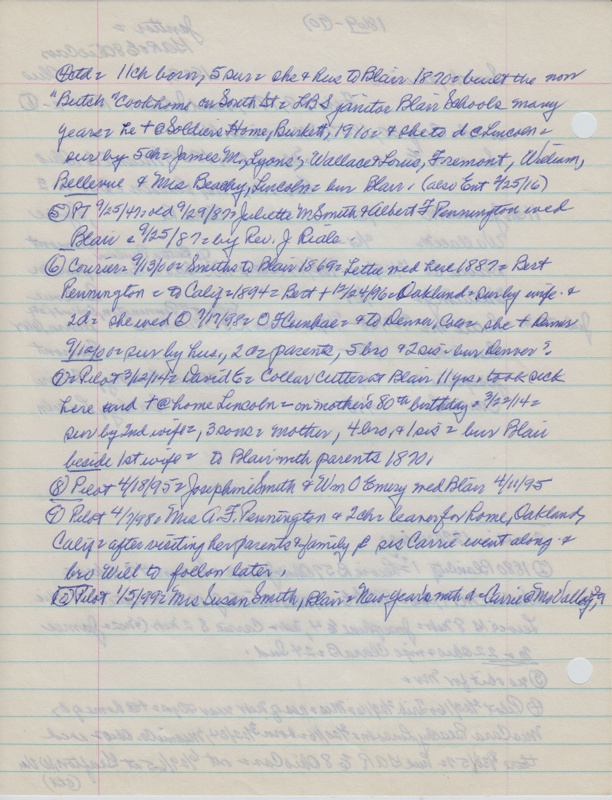 Cctd = 11ch born, 5 sur = she & hus to Blair 1870 = built the now
"Butch" Cook home on South St = LBS janitor Blair Schools many
years = he + @ Soldiers Home, Burkett, 1910 = & she to d @ Lincoln =
sur by 5 ch = James M, Lyons; Wallace & Louis, Fremont, William,
Bellevue & Mrs Beachy, Lincoln = bur Blair. (also Ent 2/25/16)
⑤ PT 9/25/47 = old 9/29/87 = Juliette M Smith & Albert F Pennington wed
Blair @ 9/25/87 = by Rev. J. Riale
⑥ Courier = 9/13/00 = Smiths to Blair 1869 = Lettie wed here 1887 = Bert
Pennington = to Calif = 1894 = Bert + 12/24/96 = Oakland = sur by wife &
2d = she wed ② 7/17/98 = O F = & to Denver, Colo = she + Denver
= sur by hus, 2 d = parents, 5 bro & 2 sis = bur Denver?
⑦ = Pilot 3/12/14 = David E = Collar Cutter at Blair 11 yrs. took sick
here and + @ home Lincoln = on mother's 80th birthday = 3/2/14 =
sur by 2nd wife =, 3 sons = mother, 4 bro, & 1 sis = bur Blair
beside 1st wife = to Blair with parents 1870.
⑧ Pilot 4/18/95 = Josephine Smith & Wm O Emery wed Blair 4/11/95
⑨ Pilot 4/7/98 = Mrs A. F. Pennington & 2 ch = leaves for home, Oakland,
Calif = after visiting her parents & family & sis Carrie went along &
bro Will to follow later.
⑩ Pilot 1/5/99 = Mrs Susan Smith, Blair = New Year's with d = Carrie @ Mo Valley, Ia